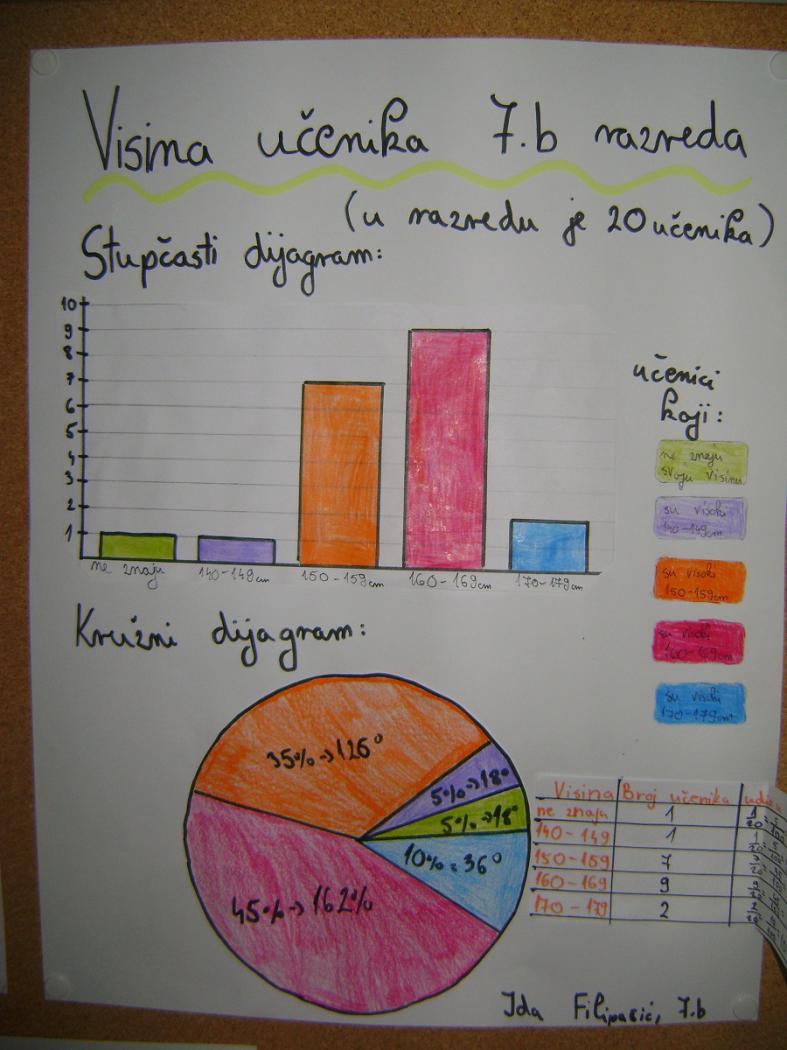 Visina učenika 7.b razreda
(u razredu je 20 učenika)
Stupčasti dijagram:
10
9
8
7
6
5
4
3
2
1
ne znaju 140-149cm 150-159cm 160-169cm 170-179cm
učenici
koji:
ne znaju
svoju visinu
su visoki
140-149cm
su visoki
150-159cm
su visoki
160-169cm
su visoki
170-179cm
Kružni dijagram:
35%→126°
5%→18°
5%→18°
10%=36°
45%→162%
Visina Broj učenika
ne znaju 1
140-149 1
150-159 7
160-169 9
170-179 2
Ida 7.b